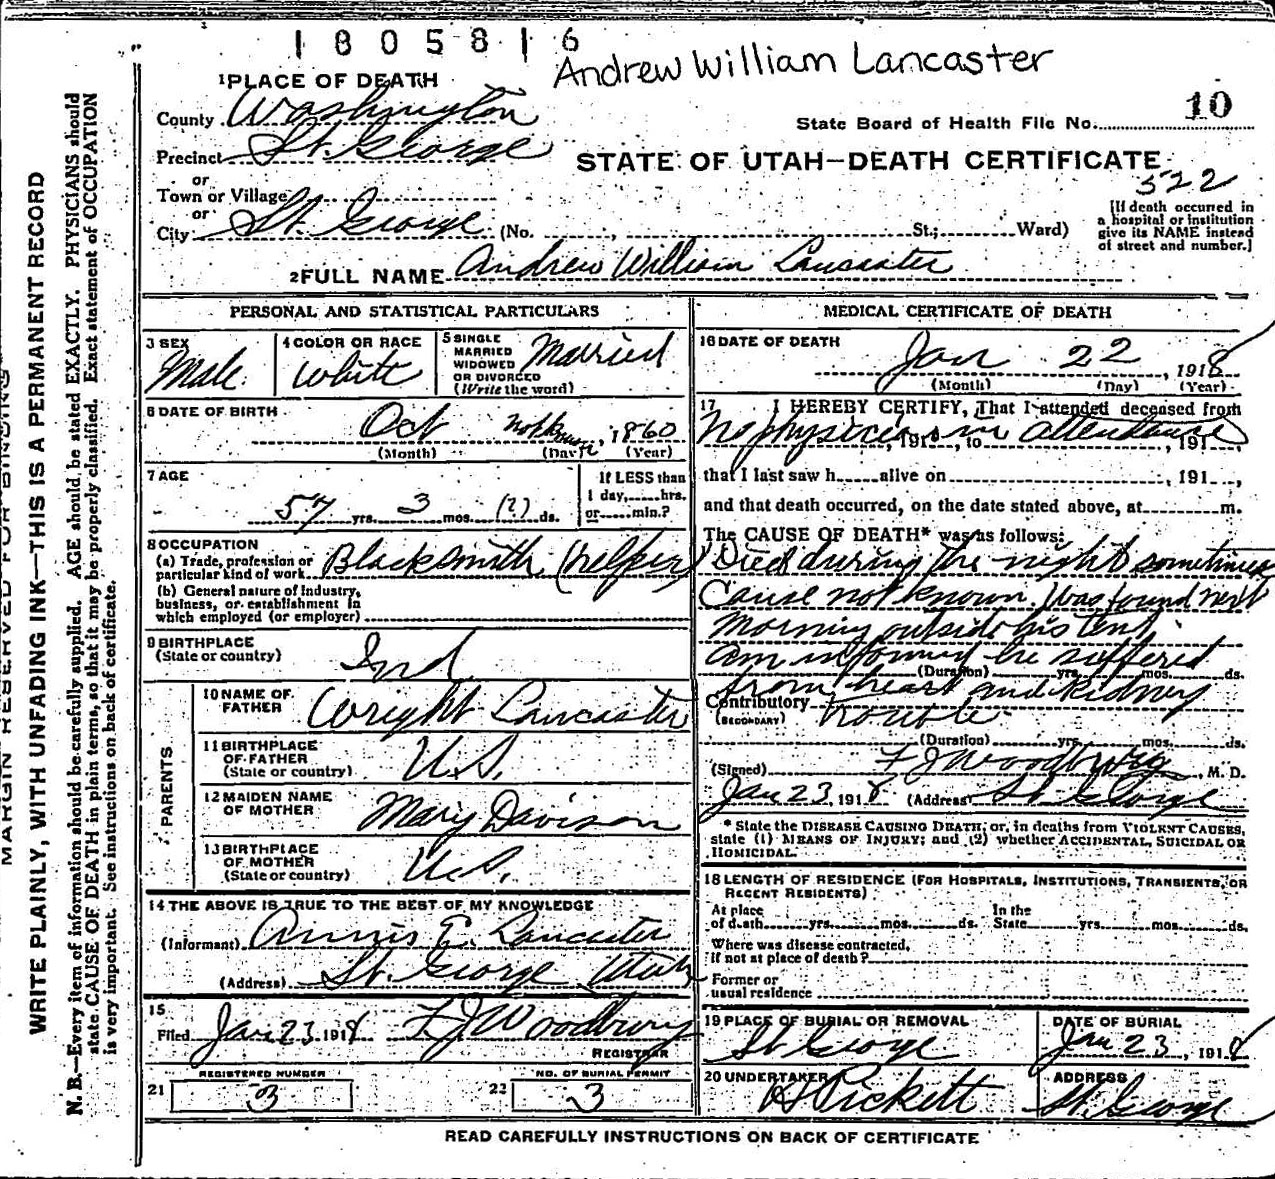 1805816
Andrew William Lancaster
1 PLACE OF DEATH
County Washington
State Board of Health File No. 10
Precinct St. George
STATE OF UTAH—DEATH CERTIFICATE
522
or
Town or Village
or
City St. George (No. , St.; Ward)
[If death occurred in
a hospital or institution
give its NAME instead
of street and number.]
2 FULL NAME Andrew William Lancaster
PERSONAL AND STATISTICAL PARTICULARS
3 SEX
Male
4 COLOR OR RACE
White
5 SINGLE
MARRIED
WIDOWED
OR DIVORCED
(Write the word)
Married
6 DATE OF BIRTH
Oct not known, 1860
(Month) (Day) (Year)
7 AGE
57 yrs. 3 mos. (?) ds.
If LESS than
1 day, hrs.
or min.?
8 OCCUPATION
(a) Trade, profession or
particular kind of work Blacksmith (helper)
(b) General nature of Industry,
business, or establishment in
which employed (or employer)
9 BIRTHPLACE
(State or country)
Ind
PARENTS
10 NAME OF
FATHER
Wright Lancaster
11 BIRTHPLACE
OF FATHER
(State or country)
U.S.
12 MAIDEN NAME
OF MOTHER
Mary Davison
13 BIRTHPLACE
OF MOTHER
(State or country)
U.S.
14 THE ABOVE IS TRUE TO THE BEST OF MY KNOWLEDGE
(Informant) Annis E. Lancaster
(Address) St. George Utah
15
Filed Jan 23 1918 F J Woodbury
REGISTRAR
REGISTERED NUMBER
21 3
NO. OF BURIAL PERMIT
22 3
MEDICAL CERTIFICATE OF DEATH
16 DATE OF DEATH
Jan 22, 1918
(Month) (Day) (Year)
17 I HEREBY CERTIFY, That I attended deceased from
No physician in attendance, 191 , to , 191 ,
that I last saw h alive on , 191 ,
and that death occurred, on the date stated above, at m.
The CAUSE OF DEATH* was as follows:
Died during the night sometime
Cause not known. Was found next
morning outside his tent,
am informed he suffered
(Duration) yrs. mos. ds.
from heart and kidney
Contributory trouble
(SECONDARY)
(Duration) yrs. mos. ds.
(Signed) F J Woodbury, M. D.
Jan 23, 1918 (Address) St. George
* State the DISEASE CAUSING DEATH; or, in deaths from VIOLENT CAUSES,
state (1) MEANS OF INJURY; and (2) whether ACCIDENTAL, SUICIDAL OR
HOMICIDAL.
18 LENGTH OF RESIDENCE (FOR HOSPITALS, INSTITUTIONS, TRANSIENTS, OR
RECENT RESIDENTS)
At place
of death yrs. mos. ds.
In the
State yrs. mos. ds.
Where was disease contracted,
if not at place of death?
Former or
usual residence
19 PLACE OF BURIAL OR REMOVAL
St George
DATE OF BURIAL
Jan 23, 1918
20 UNDERTAKER
Pickett
ADDRESS
St. George
READ CAREFULLY INSTRUCTIONS ON BACK OF CERTIFICATE
MARGIN RESERVED FOR BINDING
WRITE PLAINLY, WITH UNFADING INK—THIS IS A PERMANENT RECORD
N. B.—Every item of information should be carefully supplied. AGE should be stated EXACTLY. PHYSICIANS should
state CAUSE OF DEATH in plain terms, so that it may be properly classified. Exact statement of OCCUPATION
is very important. See instructions on back of certificate.